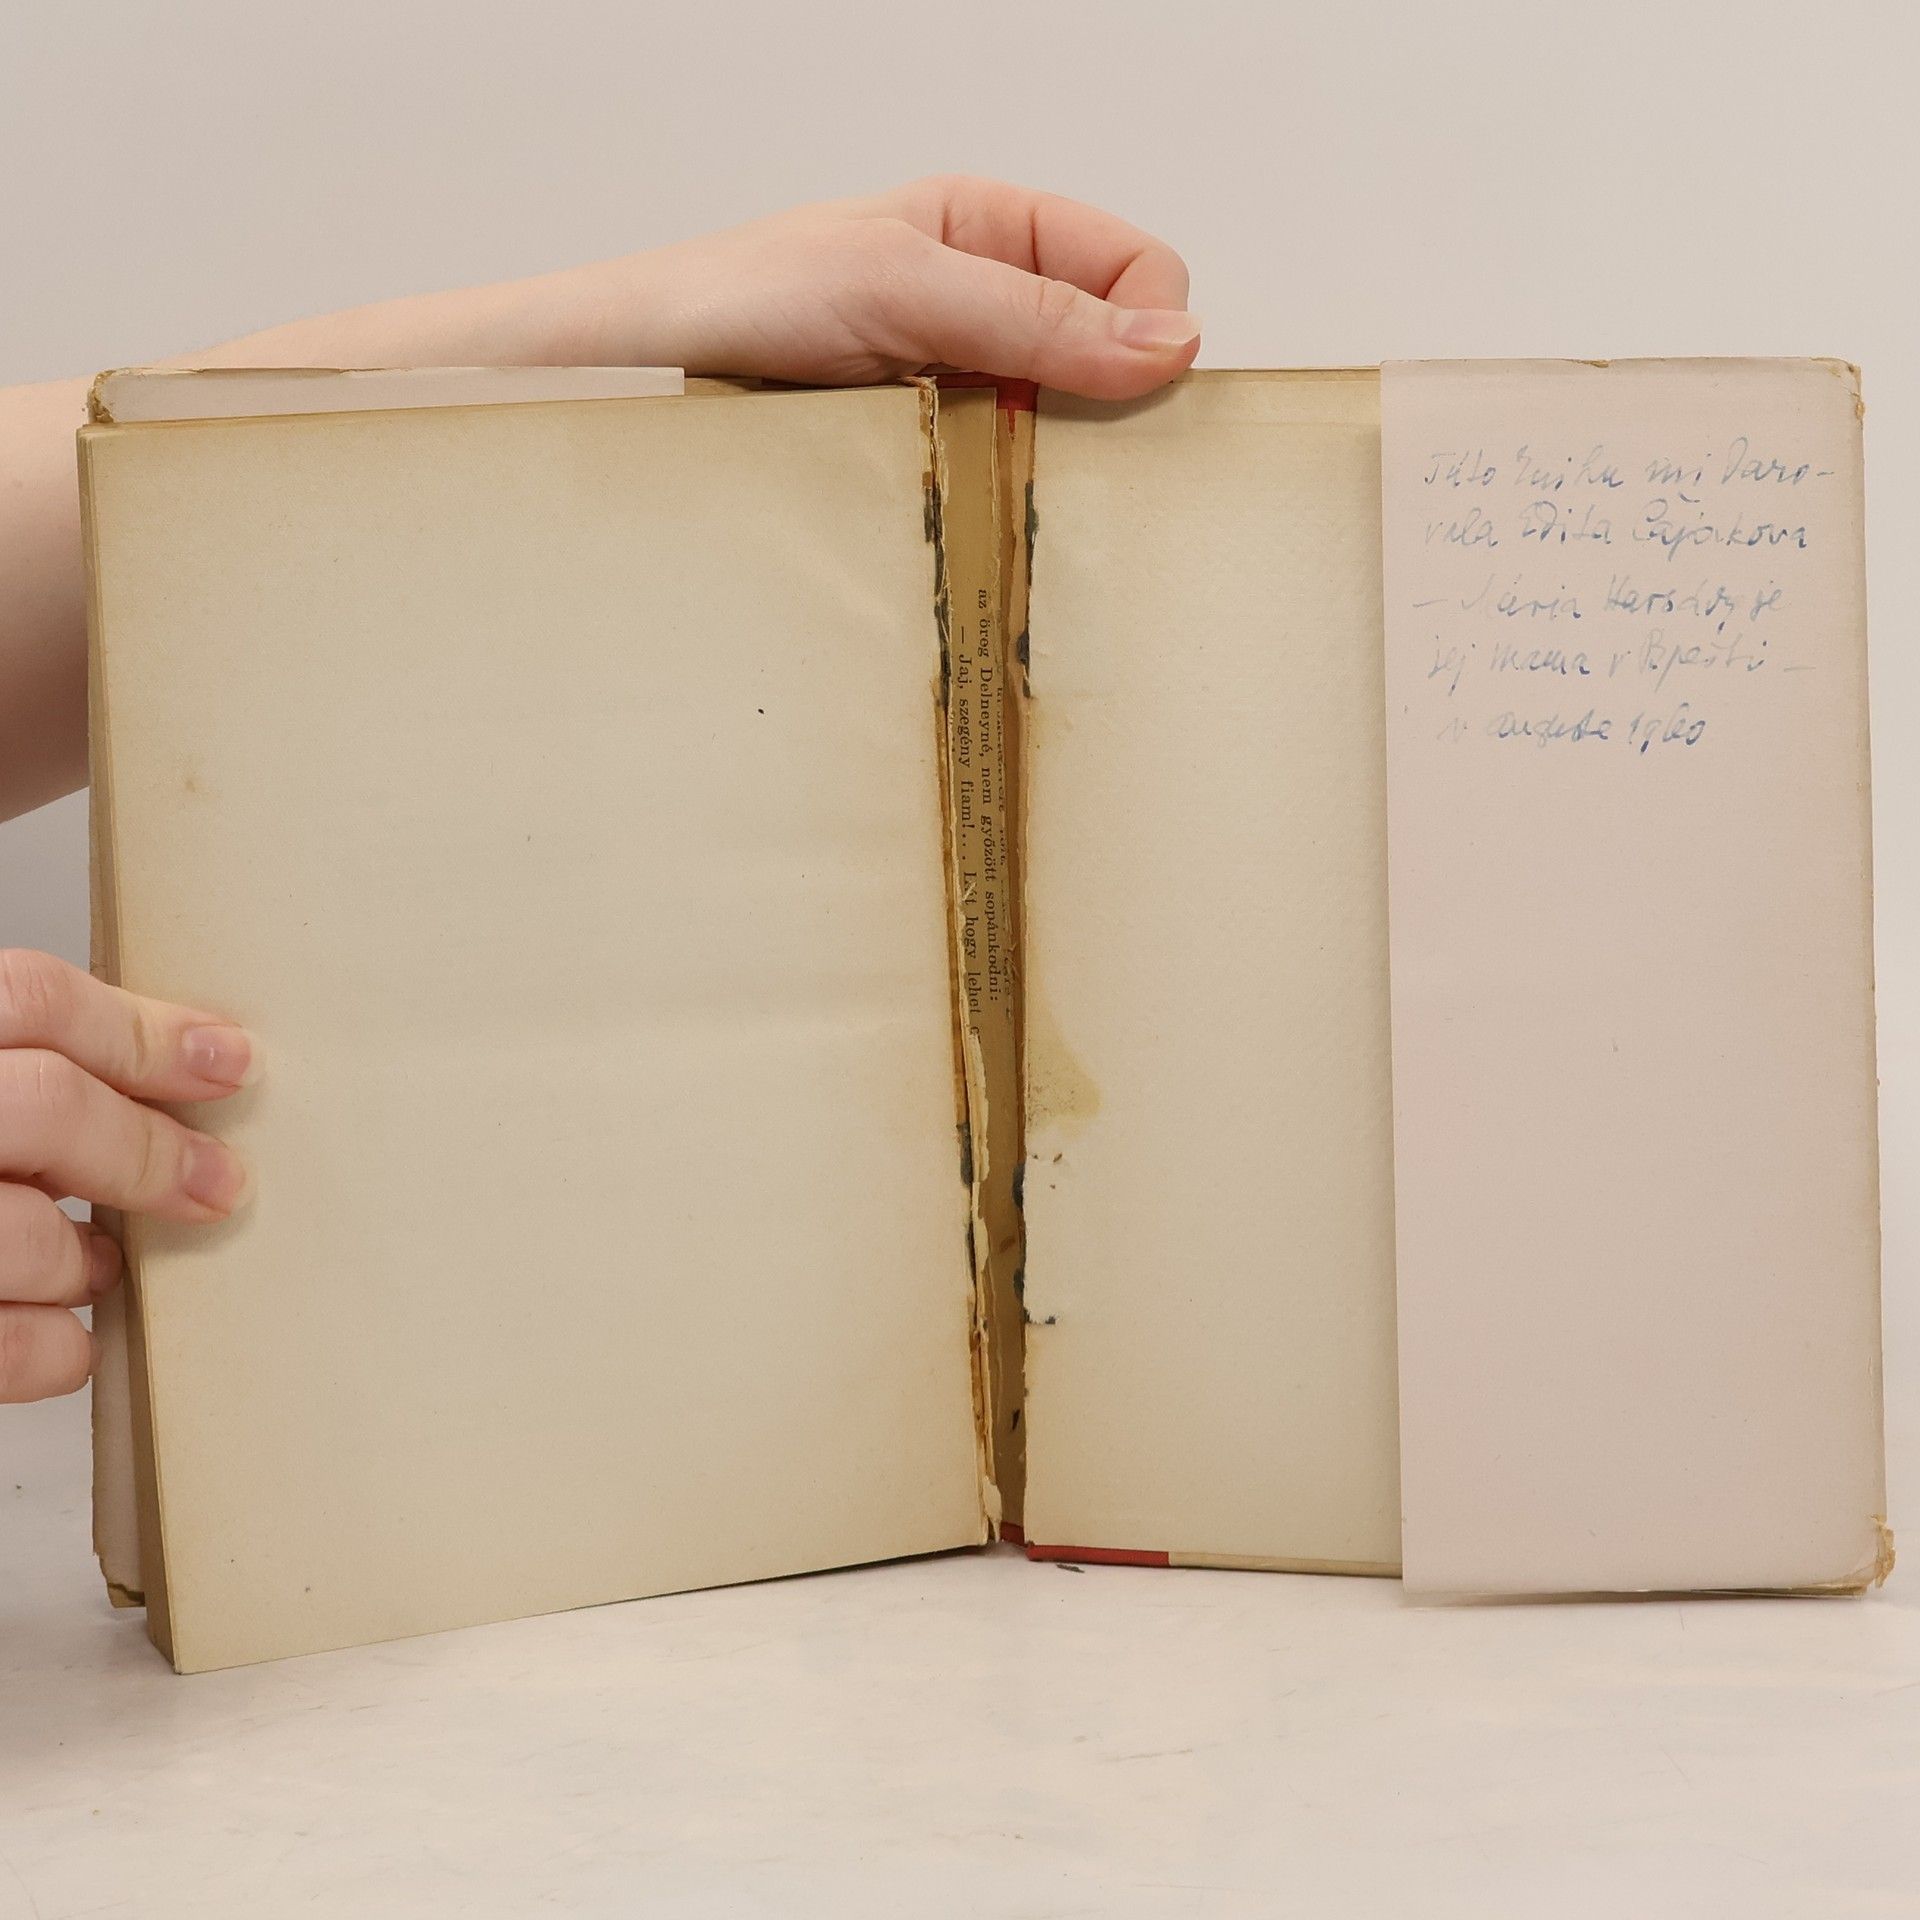 az öreg Delneyné, nem győzött sopánkodni:
— Jaj, szegény fiam!... Hát hogy lehet
Túto knihu mi Daro-
vala Edita Čajakova
— Mária Harsány je
jej mama v Bpešti —
v auguste 1960